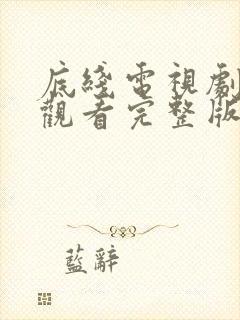 底綫電視劇
觀看完整版
藍辭